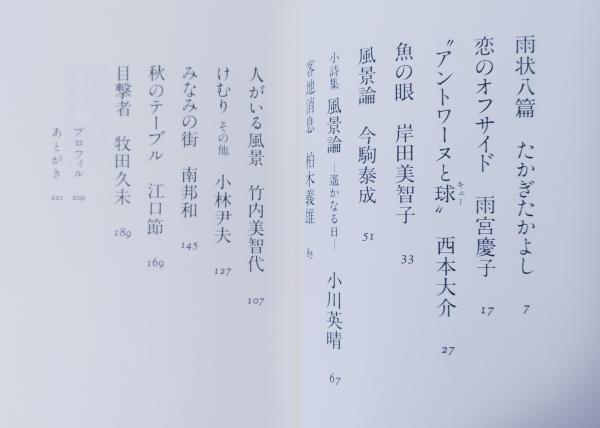 雨状八篇 たかぎたかよし 7
恋のオフサイド 雨宮慶子 17
〝アントワーヌと球〟 西本大介 27
キュー
魚の眼 岸田美智子 33
風景論 今駒泰成 51
小詩集 風景論 ―遙かなる日― 小川英晴 67
客地消息 柏木義雄 85
人がいる風景 竹内美智代 107
けむり その他 小林尹夫 127
みなみの街 南邦和 145
秋のテーブル 江口節 169
目撃者 牧田久未 189
プロフィル 209
あとがき 221